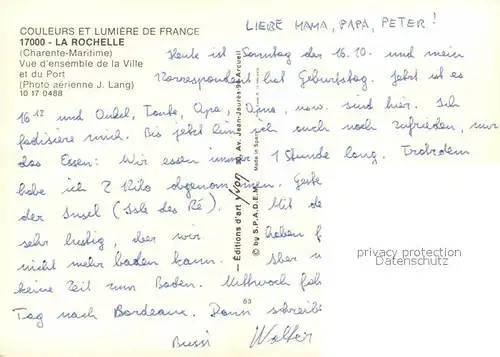 COULEURS ET LUMIÈRE DE FRANCE
17000 - LA ROCHELLE
(Charente-Maritime)
Vue d'ensemble de la Ville
et du Port
(Photo aérienne J. Lang)
10 17 0488
LIEBE MAMA, PAPA, PETER!
Heute ist Sonntag der 16.10. und mein
Korrespondent hat Geburtstag. Jetzt ist es
16 12 und Onkel, Tante, Opa, Oma, usw. sind hier. Ich
mich. Bis jetzt bin ich auch noch zufrieden, nur
das Essen: Wir essen immer 1 Stunde lang. Trotzdem
habe ich 2 Kilo abgenommen.
der Insel (Isle des Ré). Mit de
sehr lustig, aber wir haben f
nicht mehr baden kann. Aber u
keine Zeit zum Baden. Mittwoch fah
Tag nach Bordeaux. Dann schreibe
Bussi Walter
83
— Éditions d'art yvon 90, Av. Jean-Jaurès - 94 Arcueil
© by S.P.A.D.E.M.
Made in
privacy protection
Datenschutz